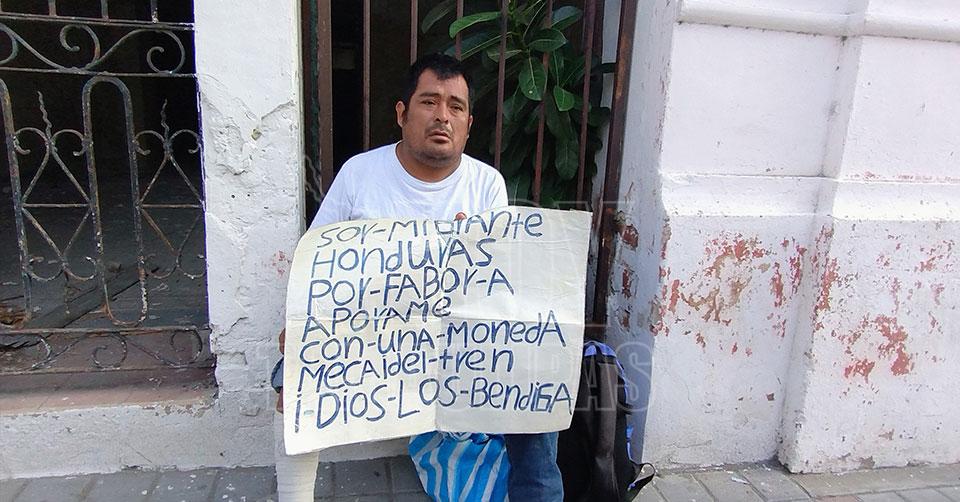 SOY-MIGRANTE
HONDURAS
POR-FABOR-A
APOYAME
CON-UNA-MONEDA
MECAIdel-tren
i-DIOS-LOS-BendiGA